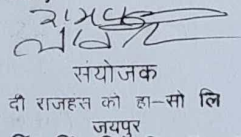 संयोजक
दी राजहंस को हा-सो लि
जयपुर